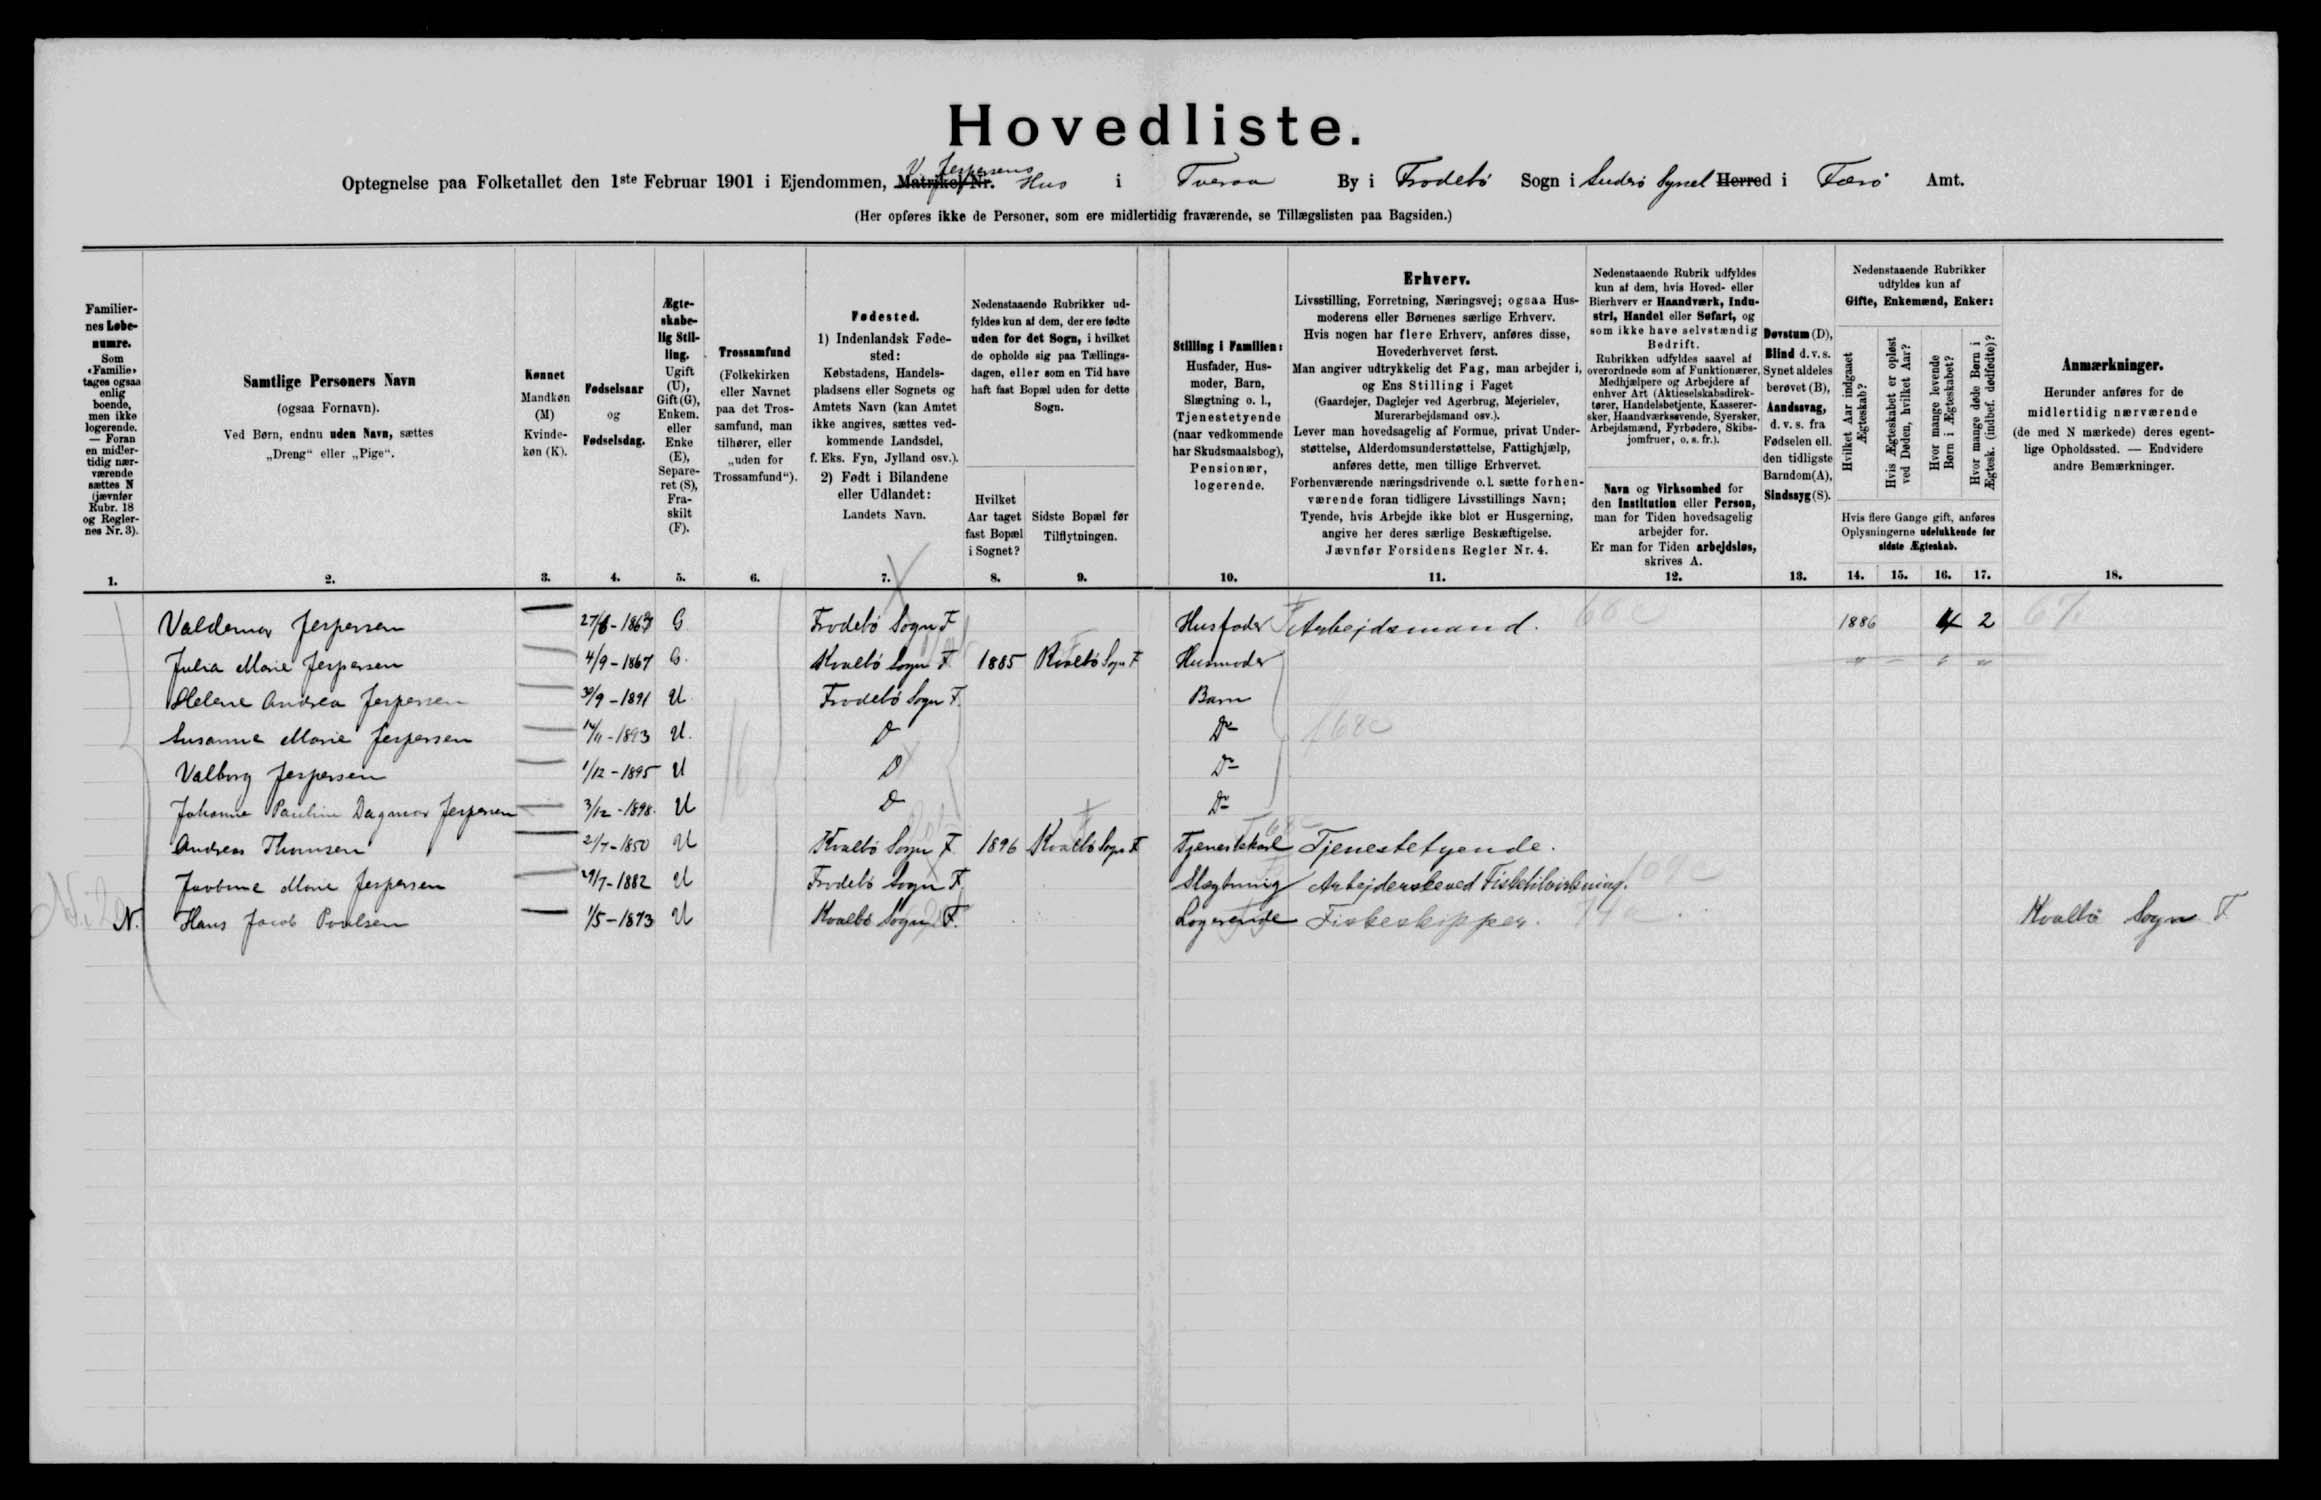 Hovedliste.
Optegnelse paa Folketallet den 1ste Februar 1901 i Ejendommen, Matrikel Nr. V. Jespersens Hus i Tveraa By i Frodebö Sogn i Suderö Syssel Herred i Færö Amt.
(Her opføres ikke de Personer, som ere midlertidig fraværende, se Tillægslisten paa Bagsiden.)
Familiernes Løbenumre.
Som «Familie» tages ogsaa enlig boende, men ikke logerende. — Foran en midlertidig nærværende sættes N (jævnfør Rubr. 18 og Reglernes Nr. 3).
Samtlige Personers Navn
(ogsaa Fornavn).
Ved Børn, endnu uden Navn, sættes
„Dreng“ eller „Pige“.
Kønnet
Mandkøn (M)
Kvindekøn (K).
Fødselsaar
og
Fødselsdag.
Ægteskabelig Stilling.
Ugift (U), Gift (G), Enkem. eller Enke (E), Separeret (S), Fraskilt (F).
Trossamfund
(Folkekirken eller Navnet paa det Trossamfund, man tilhører, eller „uden for Trossamfund“).
Fødested.
1) Indenlandsk Fødested:
Købstadens, Handelspladsens eller Sognets og Amtets Navn (kan Amtet ikke angives, sættes vedkommende Landsdel, f. Eks. Fyn, Jylland osv.).
2) Født i Bilandene eller Udlandet:
Landets Navn.
Nedenstaaende Rubrikker udfyldes kun af dem, der ere fødte uden for det Sogn, i hvilket de opholde sig paa Tællingsdagen, eller som en Tid have haft fast Bopæl uden for dette Sogn.
Hvilket Aar taget fast Bopæl i Sognet?
Sidste Bopæl før Tilflytningen.
Stilling i Familien:
Husfader, Husmoder, Barn, Slægtning o. l., Tjenestetyende (naar vedkommende har Skudsmaalsbog), Pensionær, logerende.
Erhverv.
Livsstilling, Forretning, Næringsvej; ogsaa Husmoderens eller Børnenes særlige Erhverv.
Hvis nogen har flere Erhverv, anføres disse, Hovederhvervet først.
Man angiver udtrykkelig det Fag, man arbejder i, og Ens Stilling i Faget
(Gaardejer, Daglejer ved Agerbrug, Mejerielev, Murerarbejdsmand osv.).
Lever man hovedsagelig af Formue, privat Understøttelse, Alderdomsunderstøttelse, Fattighjælp, anføres dette, men tillige Erhvervet.
Forhenværende næringsdrivende o. l. sætte forhenværende foran tidligere Livsstillings Navn;
Tyende, hvis Arbejde ikke blot er Husgerning, angive her deres særlige Beskæftigelse.
Jævnfør Forsidens Regler Nr. 4.
Nedenstaaende Rubrik udfyldes kun af dem, hvis Hoved- eller Bierhverv er Haandværk, Industri, Handel eller Søfart, og som ikke have selvstændig Bedrift.
Rubrikken udfyldes saavel af overordnede som af Funktionærer, Medhjælpere og Arbejdere af enhver Art (Aktieselskabsdirektører, Handelsbetjente, Kasserersker, Haandværkssvende, Syersker, Arbejdsmænd, Fyrbødere, Skibsjomfruer, o. s. fr.).
Navn og Virksomhed for den Institution eller Person, man for Tiden hovedsagelig arbejder for.
Er man for Tiden arbejdsløs, skrives A.
Døvstum (D), Blind d. v. s. Synet aldeles berøvet (B), Aandssvag, d. v. s. fra Fødselen ell. den tidligste Barndom (A), Sindssyg (S).
Nedenstaaende Rubrikker udfyldes kun af
Gifte, Enkemænd, Enker:
Hvilket Aar indgaaet Ægteskab?
Hvis Ægteskabet er opløst ved Døden, hvilket Aar?
Hvor mange levende Børn i Ægteskabet?
Hvor mange døde Børn i Ægtesk. (indbef. dødfødte)?
Hvis flere Gange gift, anføres Oplysningerne udelukkende for sidste Ægteskab.
Anmærkninger.
Herunder anføres for de midlertidig nærværende (de med N mærkede) deres egentlige Opholdssted. — Endvidere andre Bemærkninger.
1. 2. 3. 4. 5. 6. 7. 8. 9. 10. 11. 12. 13. 14. 15. 16. 17. 18.
Valdemar Jespersen 27/6-1863 G Frodebö Sogn F Husfader Arbejdsmand. 1886 4 2
Julia Marie Jespersen 4/9-1867 G. Kvalbö Sogn F. 1885 Kvalbö Sogn F Husmoder
Helene Andrea Jespersen 30/9-1891 U Frodebö Sogn F. Barn
Susanne Marie Jespersen 14/11-1893 U. D Do
Valborg Jespersen 1/12-1895 U D Do
Johanne Pauline Dagmar Jespersen 3/12-1898. U D Do
Andreas Thomsen 2/7-1850 U Kvalbö Sogn F 1896 Kvalbö Sogn F Tjenestekarl Tjenestetyende.
Jacobine Marie Jespersen 29/7-1882 U Frodebö Sogn F. Slægtning Arbejderske ved Fisketilvirkning.
N. Hans Jacob Poulsen 1/5-1873 U Kvalbö Sogn F. Logerende Fiskeskipper. Kvalbö Sogn F.